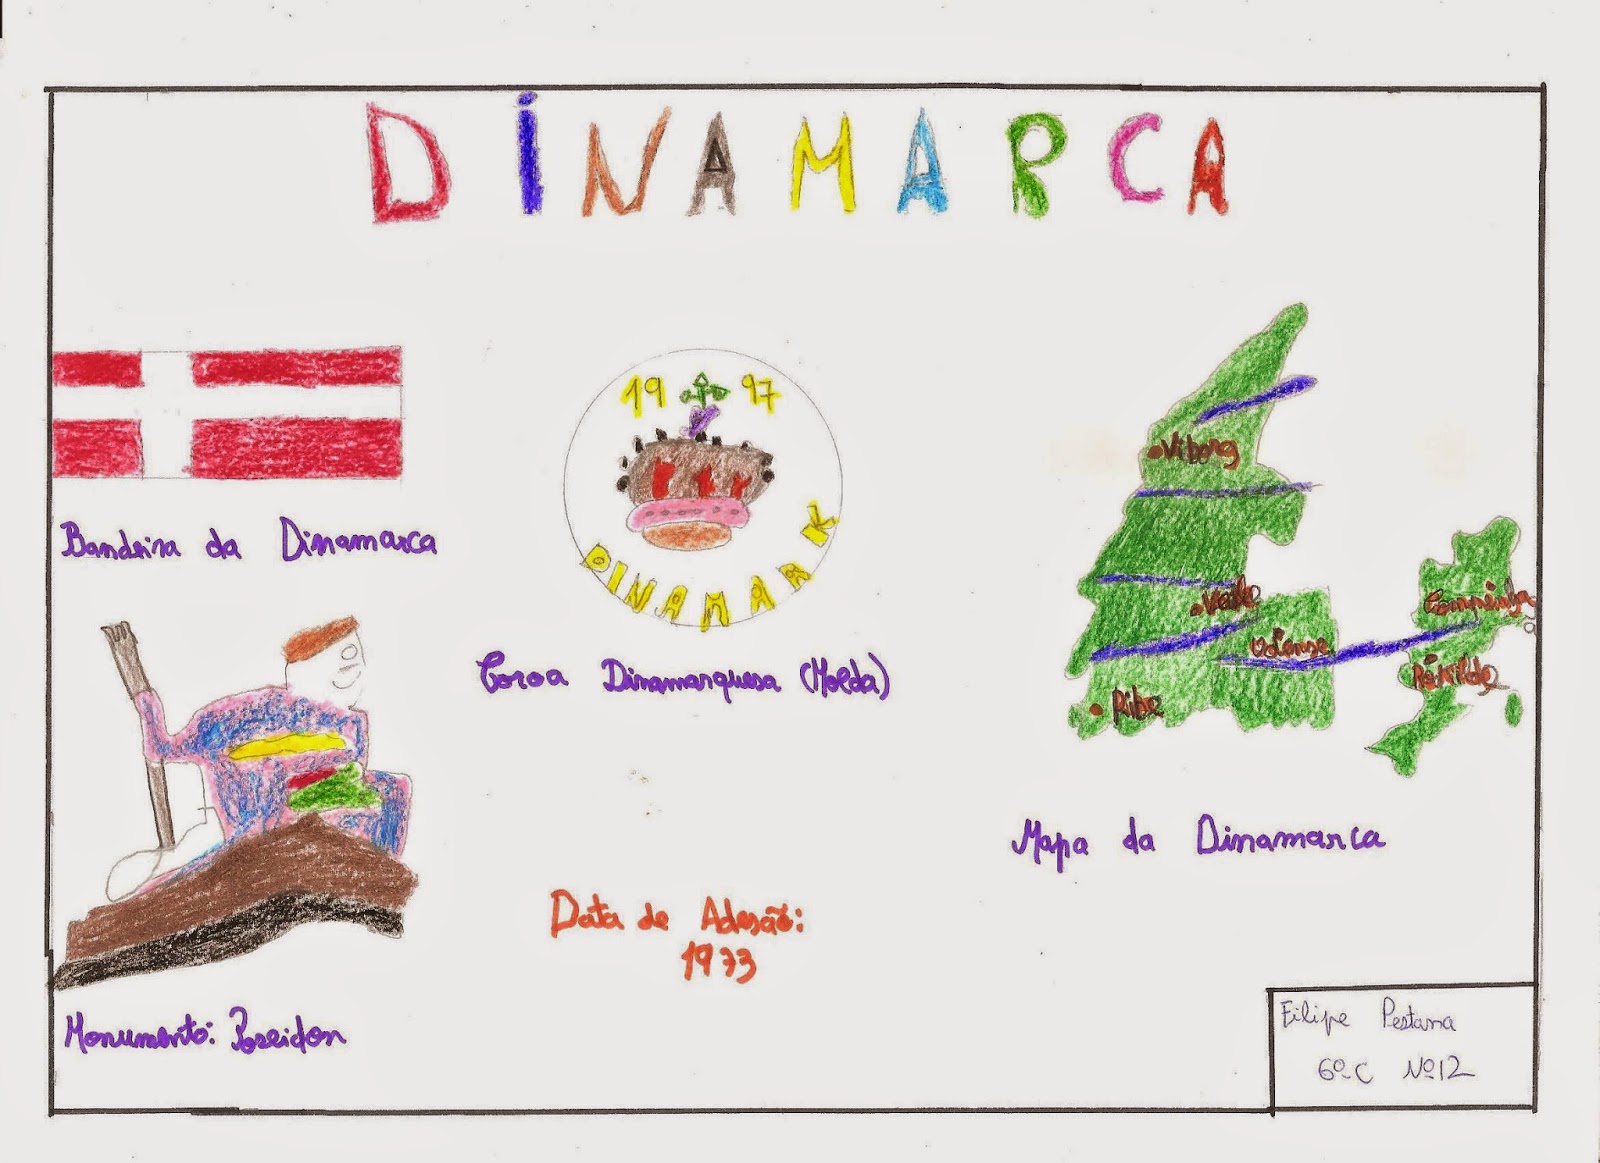 DINAMARCA
Bandeira da Dinamarca
19 97
DINAMARK
Coroa Dinamarquesa (Molda)
Viborg
Vejle
Odense
Ribe
Mapa da Dinamarca
Data de Adesão:
1973
Monumento: Poseidon
Filipe Pestana
6º C Nº12